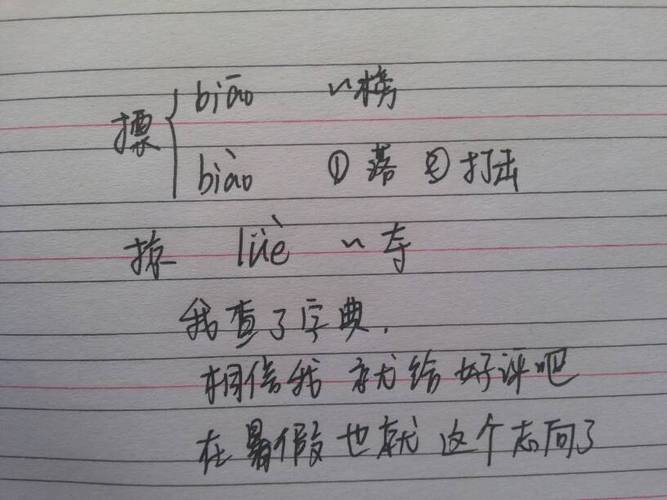 摽 { biāo ~榜
biào ①落 ②打击
掠 lüè ~夺
我查了字典,
相信我 就给好评吧
在暑假也就这个志向了